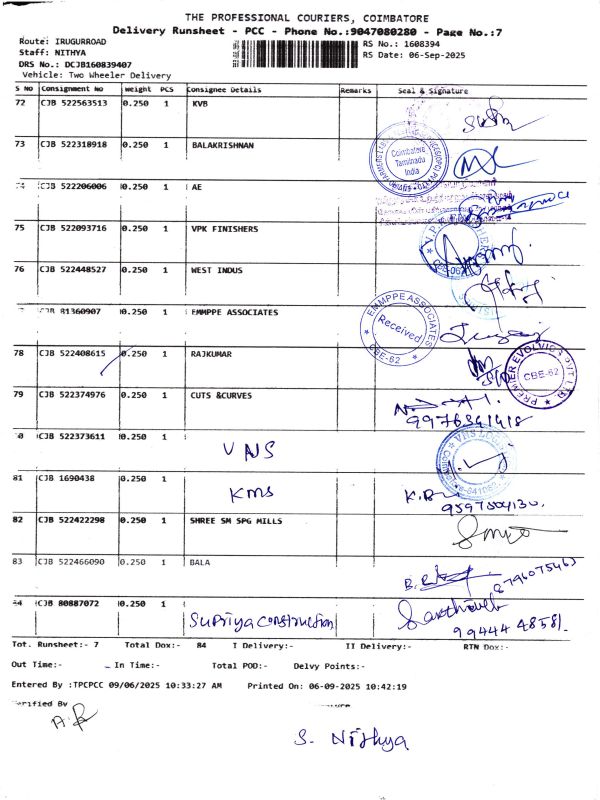 THE PROFESSIONAL COURIERS, COIMBATORE
Delivery Runsheet - PCC - Phone No.:9047080280 - Page No.:7
Route: IRUGURROAD
RS No.: 1608394
Staff: NITHYA
RS Date: 06-Sep-2025
DRS No.: DCJB160839407
Vehicle: Two Wheeler Delivery
S NO Consignment No Weight PCS Consignee Details Remarks Seal & Signature
72 CJB 522563513 0.250 1 KVB
73 CJB 522318918 0.250 1 BALAKRISHNAN
Coimbatore
Tamilnadu
India
CJB 522206006 0.250 1 AE
75 CJB 522093716 0.250 1 VPK FINISHERS
76 CJB 522448527 0.250 1 WEST INDUS
81360907 0.250 1 EMMPPE ASSOCIATES
EMMPPE ASSOCIATES
Received
CBE-62
78 CJB 522408615 0.250 1 RAJKUMAR
PREMIER EVOLVICS PVT LTD
CBE-62
79 CJB 522374976 0.250 1 CUTS &CURVES
9976341418
CJB 522373611 0.250 1 VNS
81 CJB 1690438 0.250 1 KMS
9597504130.
82 CJB 522422298 0.250 1 SHREE SM SPG MILLS
83 CJB 522466090 0.250 1 BALA
8796075463
CJB 80887072 0.250 1 Supriya construction
99444 48581.
Tot. Runsheet:- 7 Total Dox:- 84 I Delivery:- II Delivery:- RTN Dox:-
Out Time:- In Time:- Total POD:- Delvy Points:-
Entered By :TPCPCC 09/06/2025 10:33:27 AM Printed On: 06-09-2025 10:42:19
S. Nithya